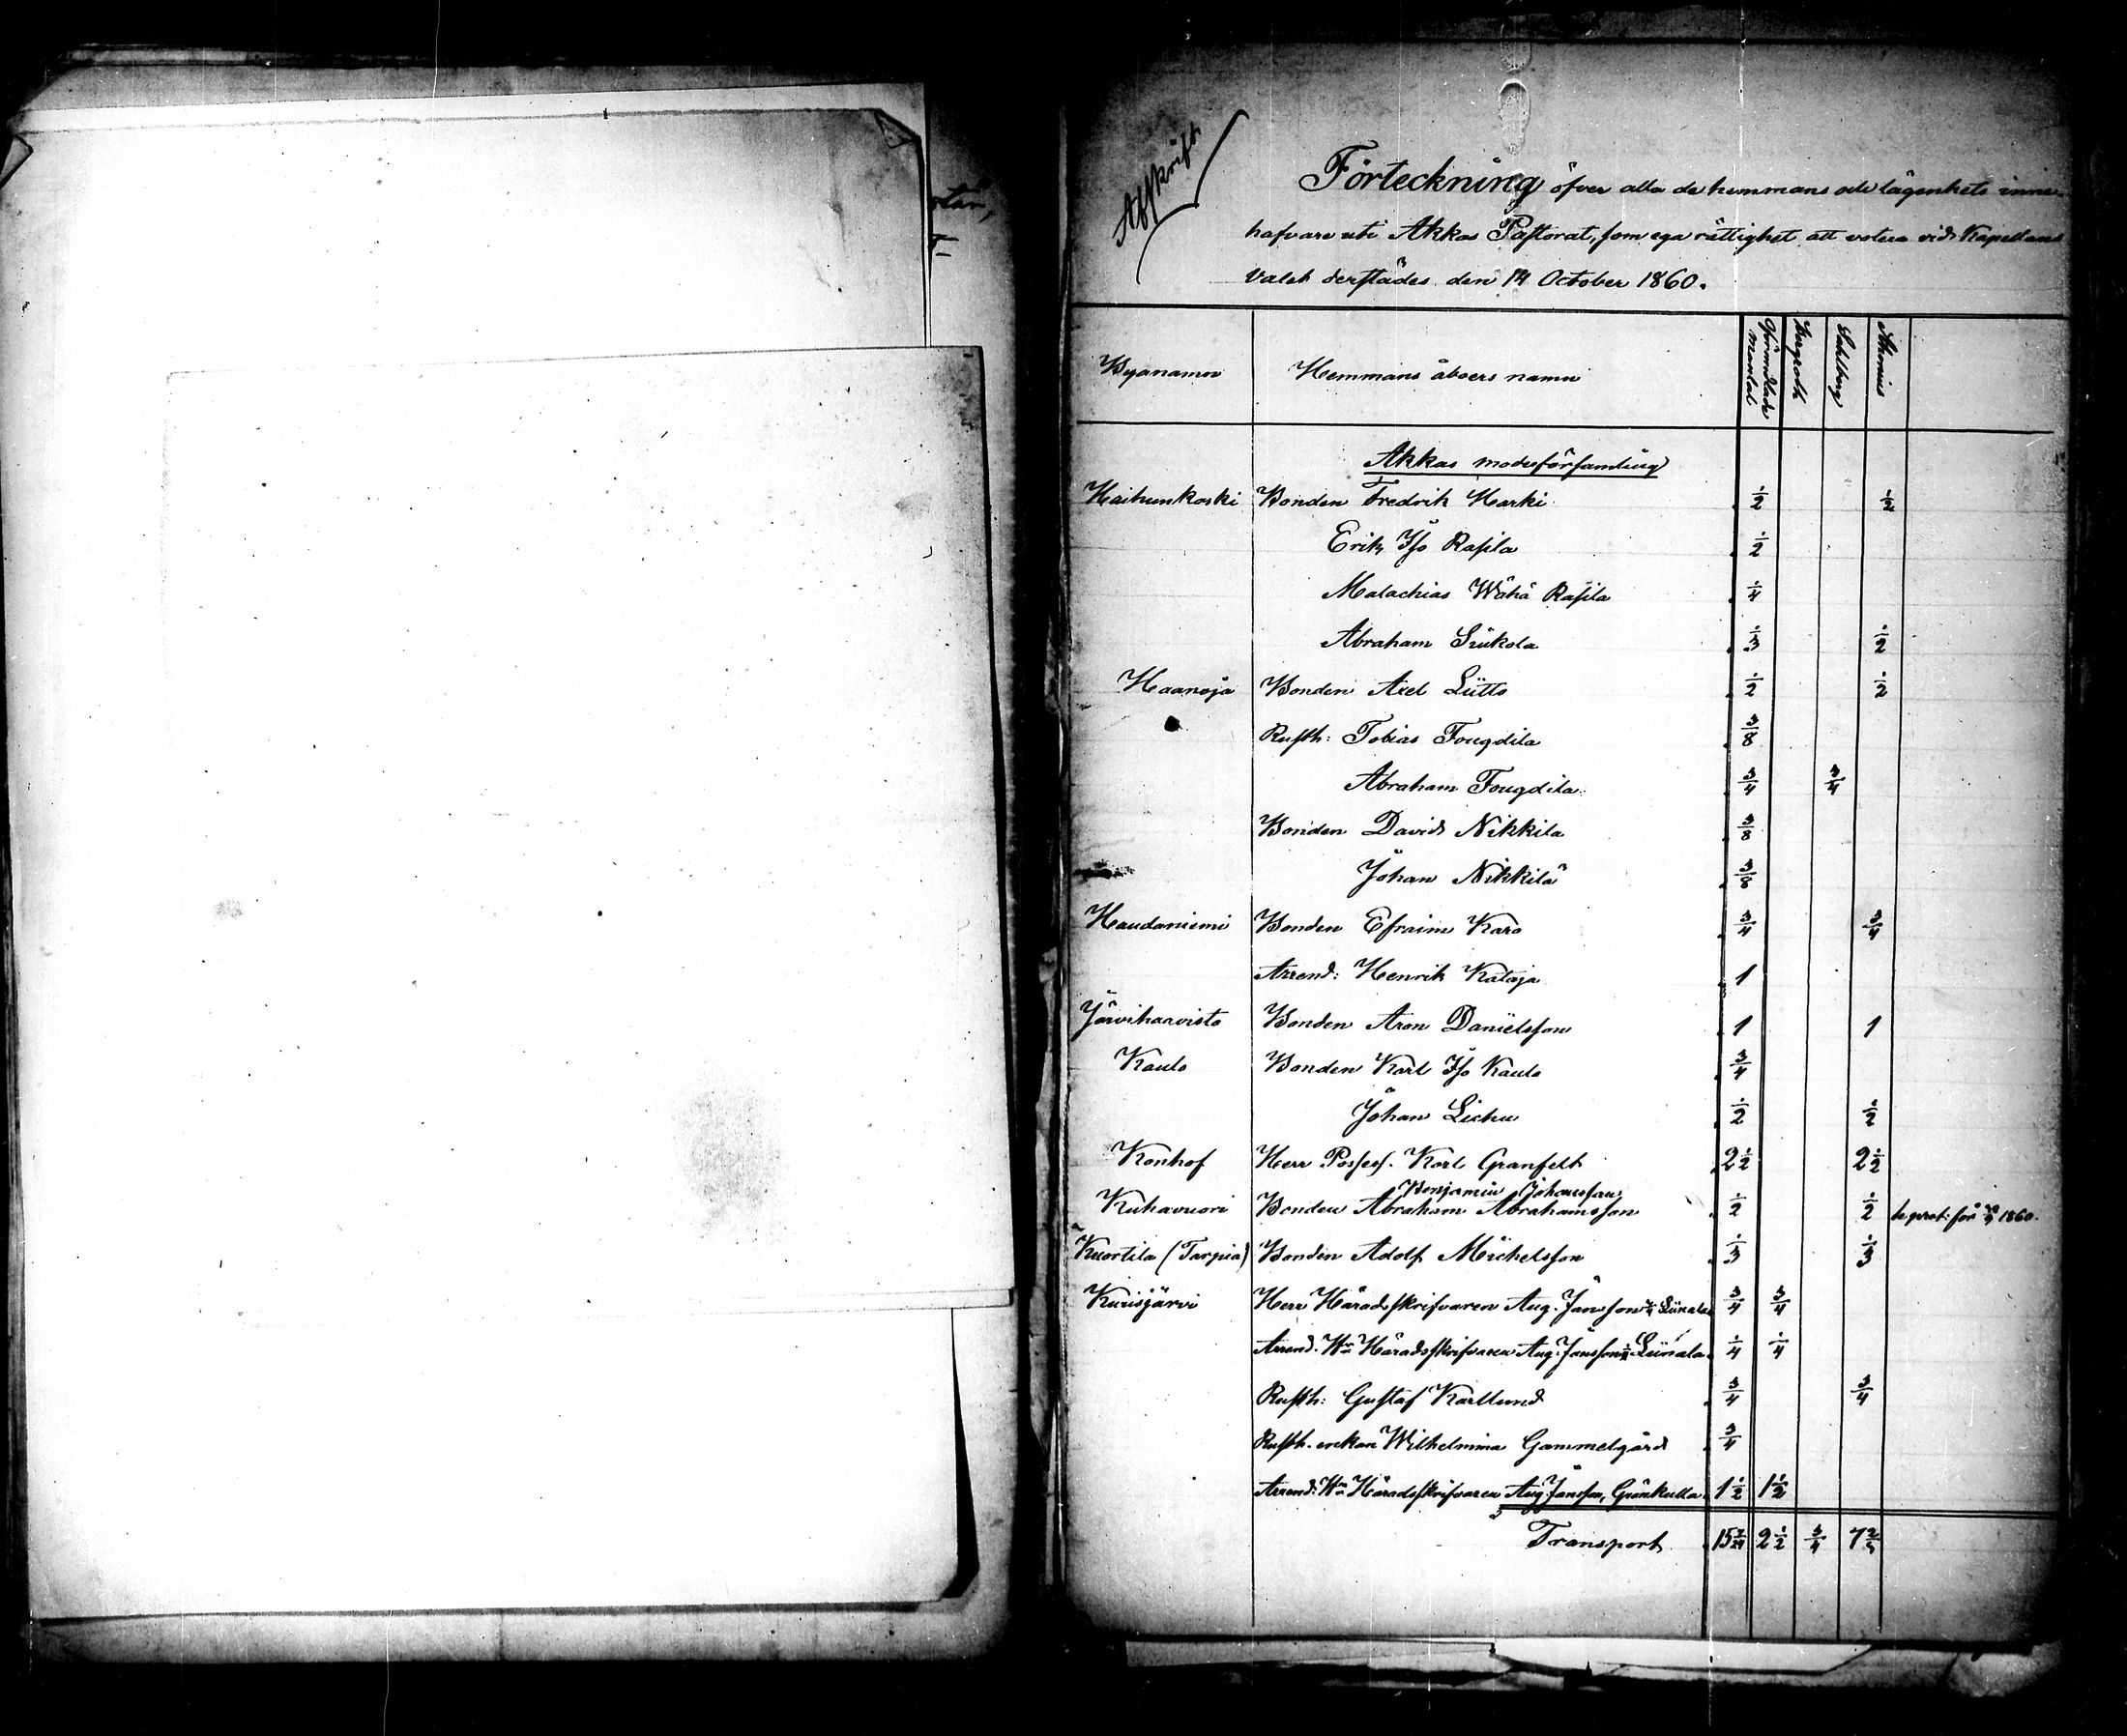 Afskrift
Förteckning öfver alla de hemmans och lägenhets inne-
hafvare uti Akkas Pastorat, som ega rättighet att votera vid Kapellans
valet derstädes den 14 October 1860.
Byanamn Hemmans åboers namn Oförmedlade Mantal Bergroth Sahlberg
Akkas moderförsamling
Haihunkoski Bonden Fredrik Harki 1/2 1/2
Erik Iso Rasila 1/2
Malachias Wähä Rasila 1/4
Abraham Siukola 1/3 1/2
Haanoja Bonden Axel Lütto 1/2 1/2
Rusth: Tobias Fougdila 3/8
Abraham Fougdila 3/4 3/4
Bonden David Nikkila 3/8
Johan Nikkilä 3/8
Haudaniemi Bonden Efraim Karo 3/4 3/4
Arrend: Henrik Kataja 1
Järvihaavisto Bonden Aron Danielsson 1 1
Kaulo Bonden Karl Iso Kaulo 3/4
Johan 1/2 1/2
Konhof Herr Possess. Karl Granfelt 2 1/2 2 1/2
Benjamin Johansson
Kuhavuori Bonden Abraham Abrahamsson 1/2 1/2 1860.
Kuortila (Tarpia) Bonden Adolf Michelsson 1/3 1/3
Kurisjärvi Herr Häradsskrifvaren Aug. Jansson 3/4 3/4
Arrend. Hrr Häradsskrifvaren Aug. Jansson 1/4 1/4
Rusth: Gustaf Karllund 3/4 3/4
Rusth. enkan Wilhelmina Gammelgård 3/4
Arrend: Hrr Häradsskrifvaren Aug. Jansson, Grönkulla 1 1/2 1 1/2
Transport 15 7/24 2 1/2 3/4